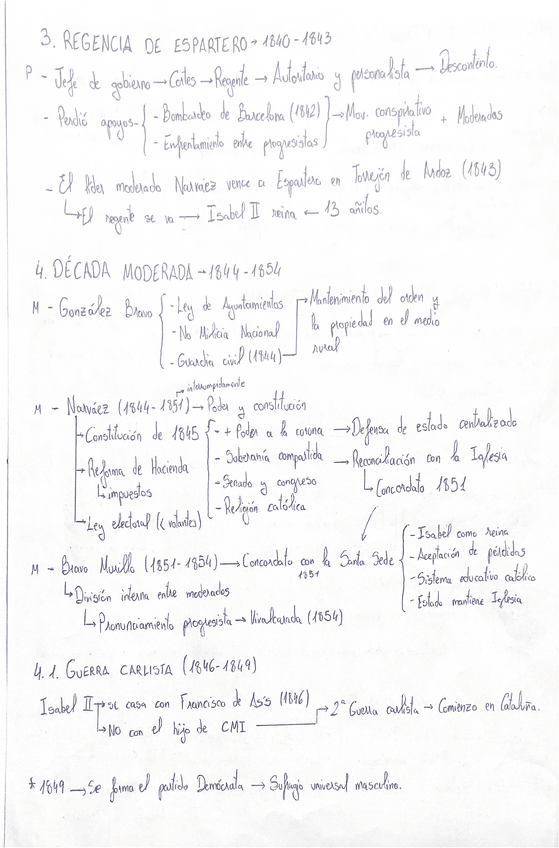 3. REGENCIA DE ESPARTERO → 1840-1843
P - Jefe de gobierno → Cortes → Regente → Autoritario y personalista → Descontento.
- Perdió apoyos - { - Bombardeo de Barcelona (1842) → Mov. conspirativo progresista + Moderados
- Enfrentamiento entre progresistas
- El líder moderado Narváez vence a Espartero en Torrejón de Ardoz (1843)
↳ El regente se va → Isabel II reina ← 13 añitos.
4. DÉCADA MODERADA → 1844-1854
M - González Bravo { - Ley de Ayuntamientos
- No Milicia Nacional
- Guardia civil (1844) → Mantenimiento del orden y
la propiedad en el medio
rural
→ interrumpidamente
M - Narváez (1844-1851) → Poder y constitución
→ Constitución de 1845 { - + Poder a la corona → Defensa de estado centralizado
- Soberanía compartida → Reconciliación con la Iglesia
→ Reforma de Hacienda - Senado y congreso ↳ Concordato 1851
↳ impuestos - Religión católica
→ Ley electoral (< votantes)
M - Bravo Murillo (1851-1854) → Concordato con la Santa Sede { - Isabel como reina
1851 - Aceptación de pérdidas
- Sistema educativo católico
- Estado mantiene Iglesia
↳ División interna entre moderados
↳ Pronunciamiento progresista → Vicalvarada (1854)
4.1. GUERRA CARLISTA (1846-1849)
Isabel II → se casa con Francisco de Asís (1846)
↳ No con el hijo de CMI → 2ª Guerra carlista → Comienzo en Cataluña.
* 1849 → Se forma el partido Demócrata → Sufragio universal masculino.